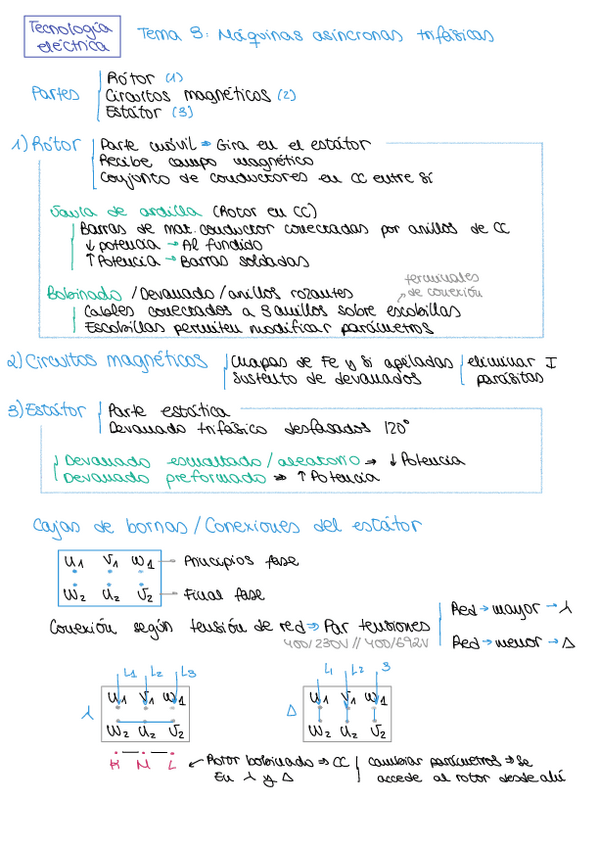 Tecnología
eléctrica
Tema 3: Máquinas asíncronas trifásicas
Partes
Rótor (1)
Circuitos magnéticos (2)
Estátor (3)
1) Rótor
Parte móvil → Gira en el estátor
Recibe campo magnético
Conjunto de conductores en CC entre sí
Jaula de ardilla (Rotor en CC)
Barras de mat. conductor conectadas por anillos de CC
↓ potencia → Al fundido
↑ Potencia → Barras soldadas
Bobinado / Devanado / anillos rozantes
terminales
de conexión
Cables conectados a 3 anillos sobre escobillas
Escobillas permiten modificar parámetros
2) Circuitos magnéticos
Chapas de Fe y Si apiladas
Sustento de devanados
eliminar I
parásitas
3) Estátor
Parte estática
Devanado trifásico desfasados 120°
Devanado esmaltado / aleatorio → ↓ Potencia
Devanado preformado → ↑ Potencia
Cajas de bornas / Conexiones del estátor
U1 V1 W1 — Principios fase
W2 U2 V2 — Final fase
Conexión según tensión de red → Par tensiones
400/230V // 400/692V
Red → mayor → ⅄
Red → menor → Δ
L1 L2 L3
U1 V1 W1
⅄
W2 U2 V2
K — M — L
L1 L2 3
U1 V1 W1
Δ
W2 U2 V2
Rotor bobinado → CC
En ⅄ y Δ
cambiar parámetros → Se
accede al rotor desde ahí